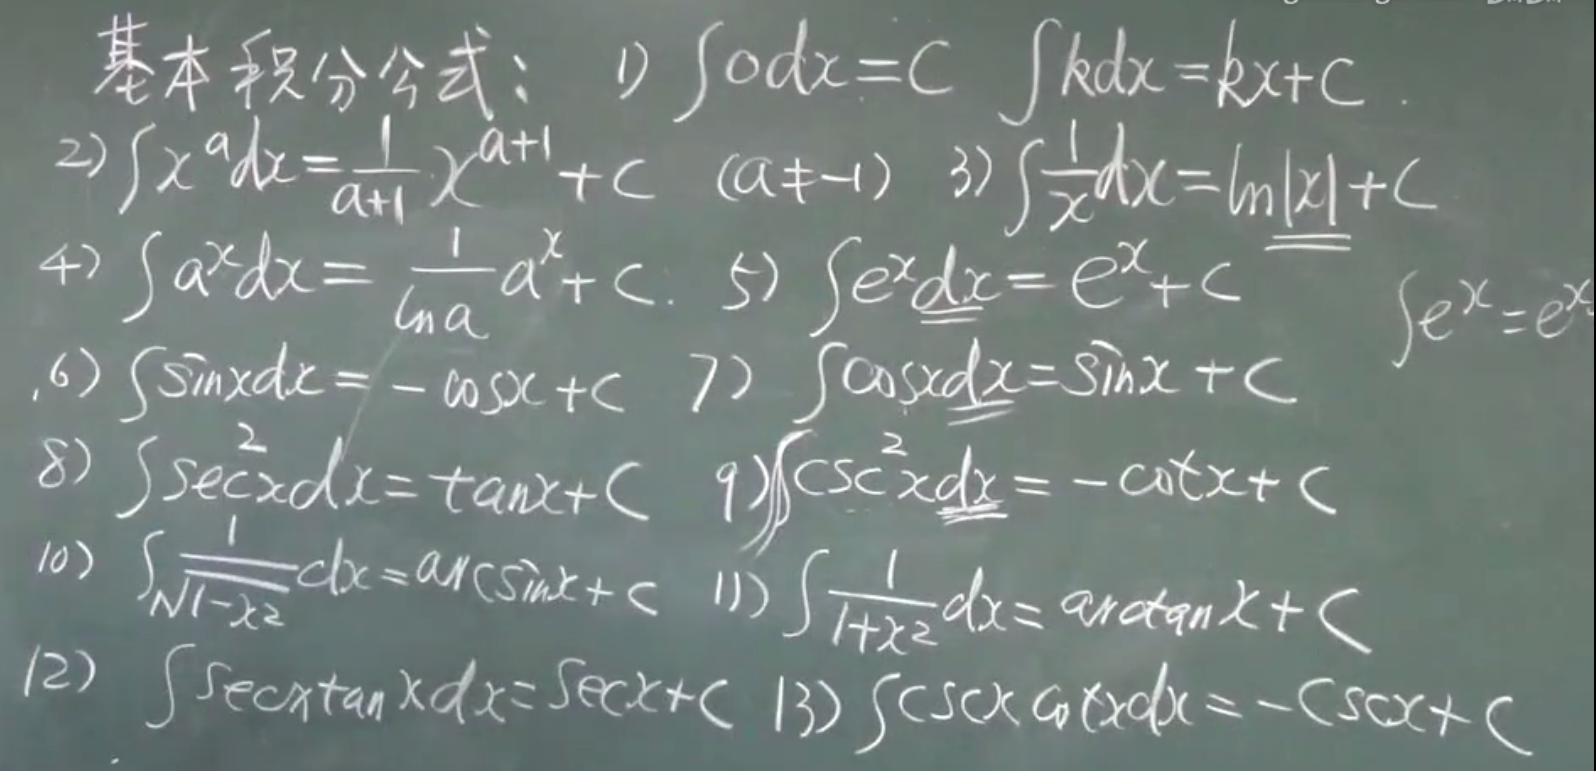 基本积分公式: 1) ∫0dx=C ∫kdx=kx+C.
2) ∫x^a dx=\frac{1}{a+1}x^{a+1}+C (a≠-1) 3) ∫\frac{1}{x}dx=ln|x|+C
4) ∫a^x dx=\frac{1}{ln a}a^x+C. 5) ∫e^x dx=e^x+C ∫e^x=e^x
6) ∫sinxdx=-cosx+C 7) ∫cosxdx=sinx+C
8) ∫sec^2 xdx=tanx+C 9) ∫csc^2 xdx=-cotx+C
10) ∫\frac{1}{\sqrt{1-x^2}}dx=arcsinx+C 11) ∫\frac{1}{1+x^2}dx=arctanx+C
12) ∫secxtanxdx=secx+C 13) ∫cscxcotxdx=-cscx+C